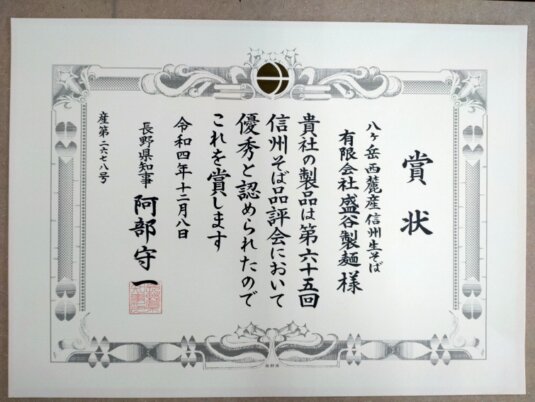 賞状
八ヶ岳西麓産信州生そば
有限会社盛谷製麺様
貴社の製品は第六十五回
信州そば品評会において
優秀と認められたので
これを賞します
令和四年十二月八日
長野県知事 阿部守一
産第二六七八号